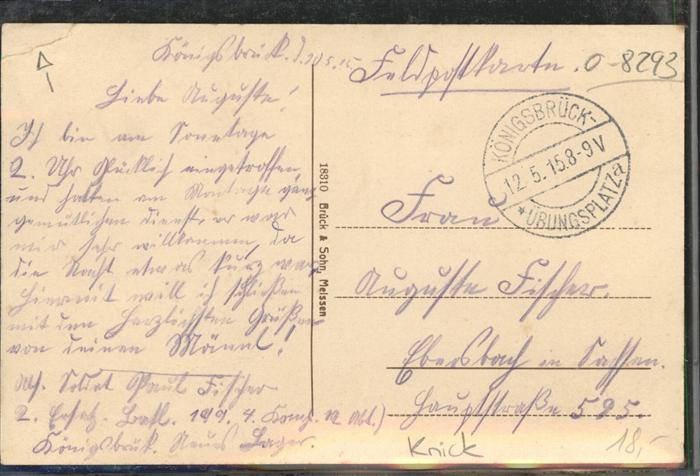 Königsbrück. d. 10.5.15
Liebe Auguste!
Ich bin am Sonntage
2. Uhr Pücklich eingetroffen,
und hatten am Montage ganz
gemütlichen dienst, er war
mir sehr willkommen, da
die Nacht etwas kurz war.
Hiermit will ich schließen
mit den Herzlichsten Grüßen
von deinen Männl!
Abs. Soldat Paul Fischer
2. Ersatz. Batl. 4. Komp.
Königsbrück. Neues Lager.
18310 Brück & Sohn, Meissen
Feldpostkarte. O-8293
KÖNIGSBRÜCK-
12.5.15.8-9V
*ÜBUNGSPLATZ a
Frau
Auguste Fischer.
Ebersbach in Sachsen.
Hauptstraße 595.
Knick
18,-